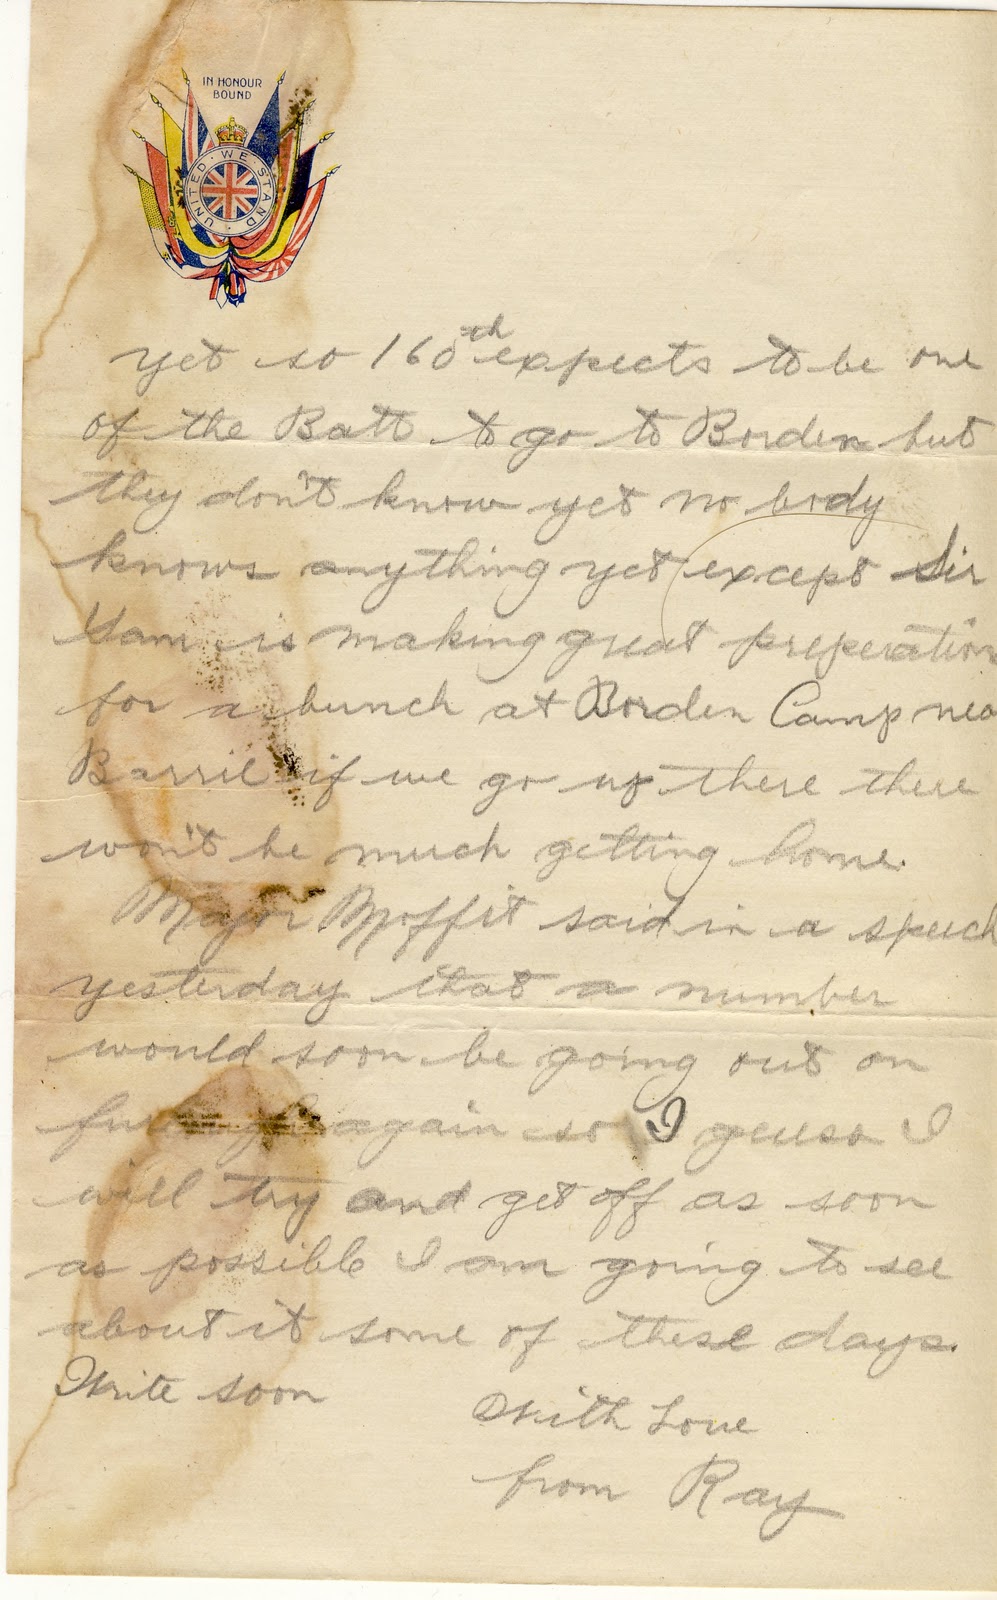 IN HONOUR
BOUND
UNITED · WE · STAND
yet so 160th expects to be one
of the Batt to go to Borden but
they don't know yet no body
knows anything yet except Sir
Sam is making great preperation
for a bunch at Borden Camp nea
Barrie if we go up there there
won't be much getting home.
Major Moffit said in a speech
yesterday that a number
would soon be going out on
again so I guess I
will try and get off as soon
as possible I am going to see
about it some of these days.
Write soon
With Love
from Ray